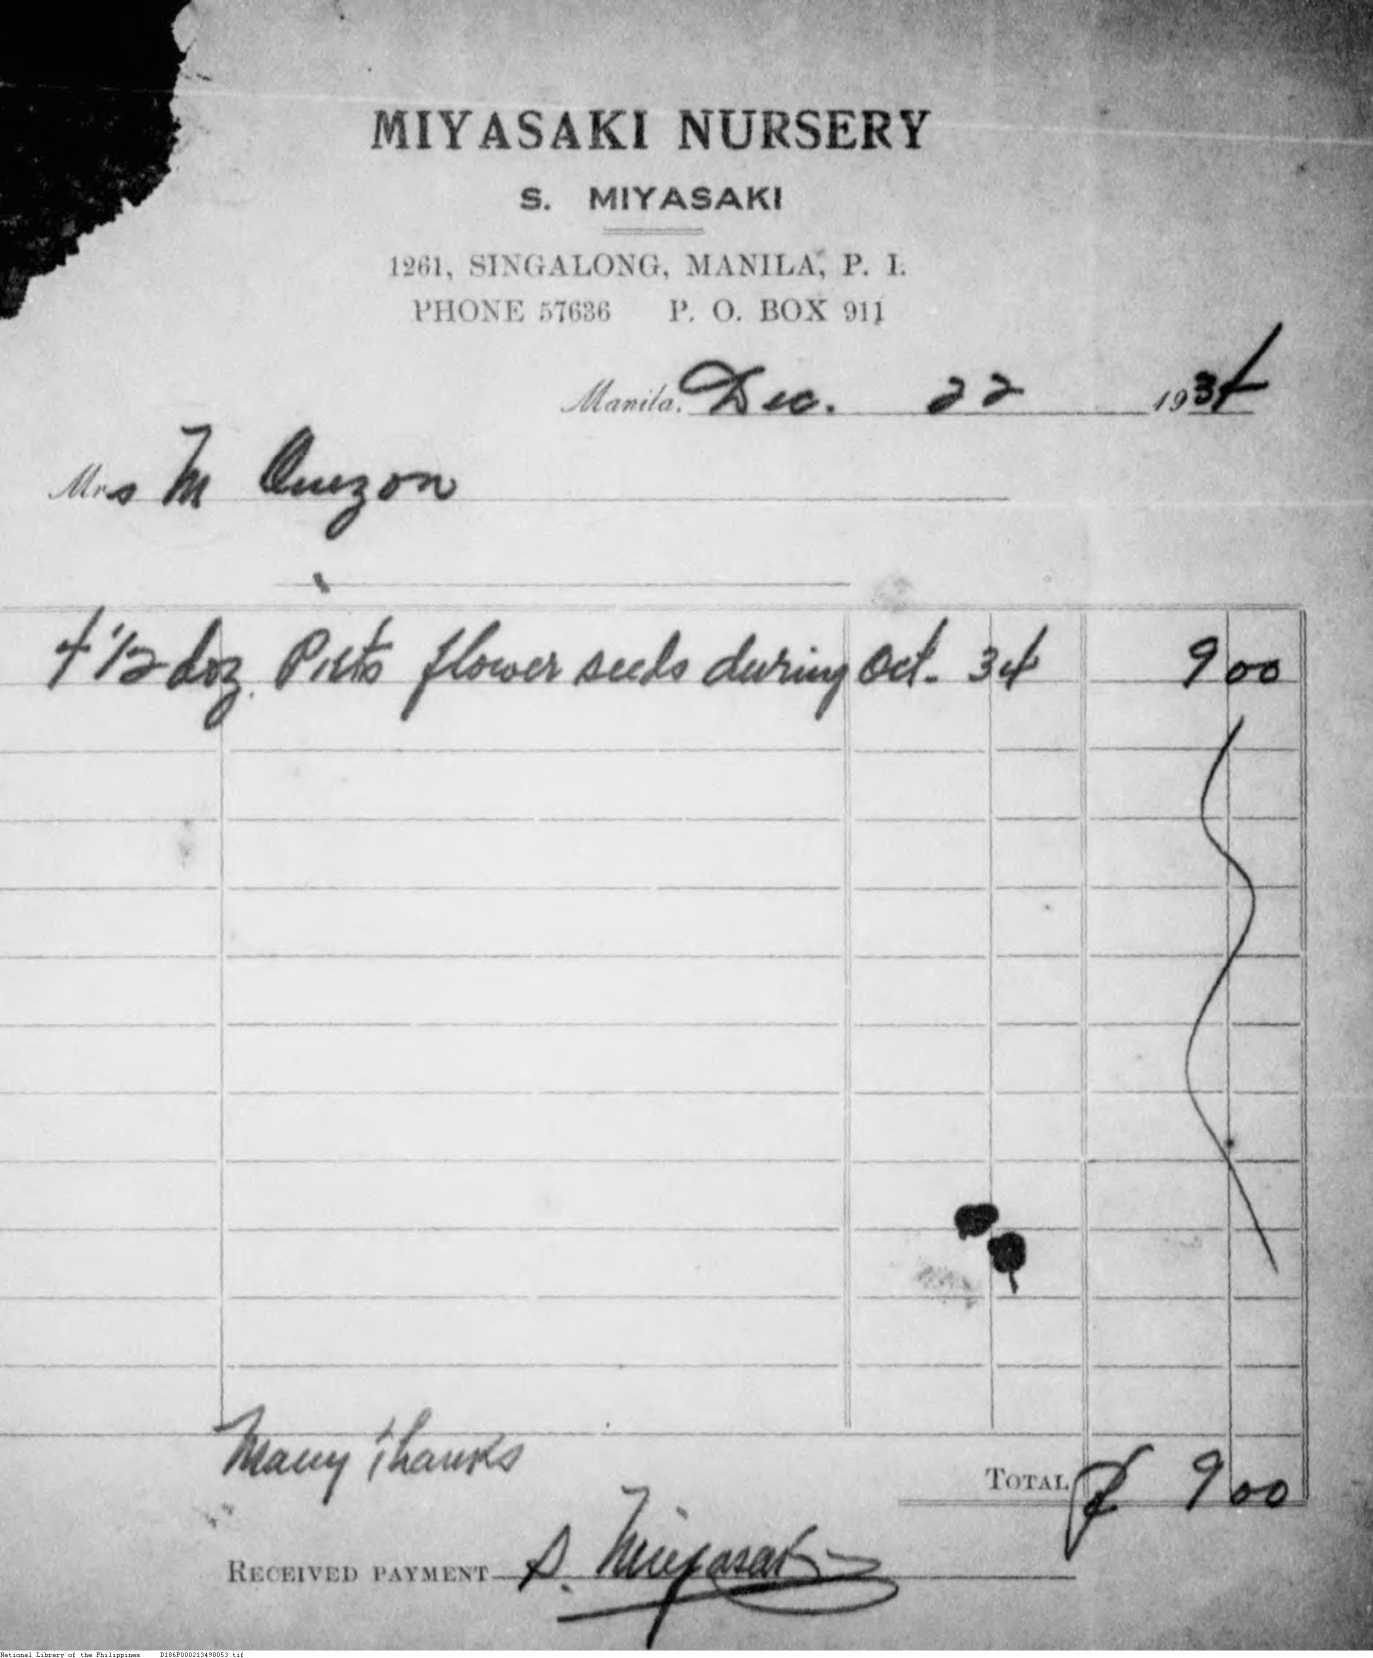 MIYASAKI NURSERY
S. MIYASAKI
1261, SINGALONG, MANILA, P. I.
PHONE 57636 P. O. BOX 911
Manila, Dec. 22 1934
Mrs M Quezon
4 1/2 doz. Pkts flower seeds during Oct. 34 9 00
Many Thanks
TOTAL ₱ 9 00
RECEIVED PAYMENT S. Miyasaki
National Library of the Philippines D186P000213498053.tif